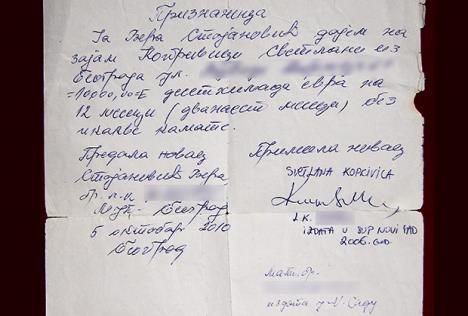 Признаница
Ја Вера Стојановић дајем на
зајам Копривици Светлани из
Београда ул.
=10000,00=Е десетхиљада евра на
12 месеци (дванаест месеци) без
икакве камате.
Предала новац
Стојановић Вера
бр. л.к.
МУП Београд
5 октобар 2010
Београд
Примила новац
SVETLANA KOPRIVICA
L.K.
IZDATA U SUP NOVI SAD
2006. GOD.
Мат. бр.
издата у Н. Саду